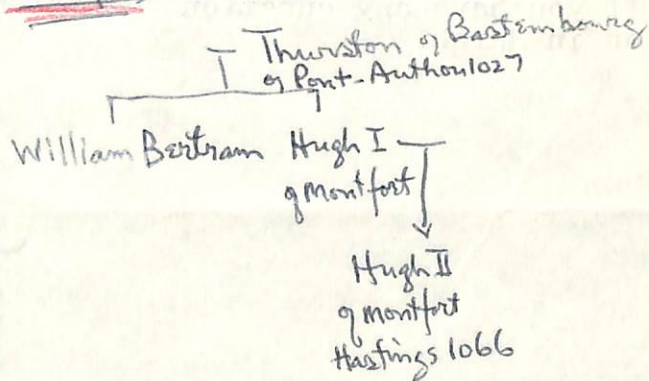 Thurston of Bastembourg
of Pont-Authou 1027
William Bertram Hugh I
of Montfort
Hugh II
of Montfort
Hastings 1066